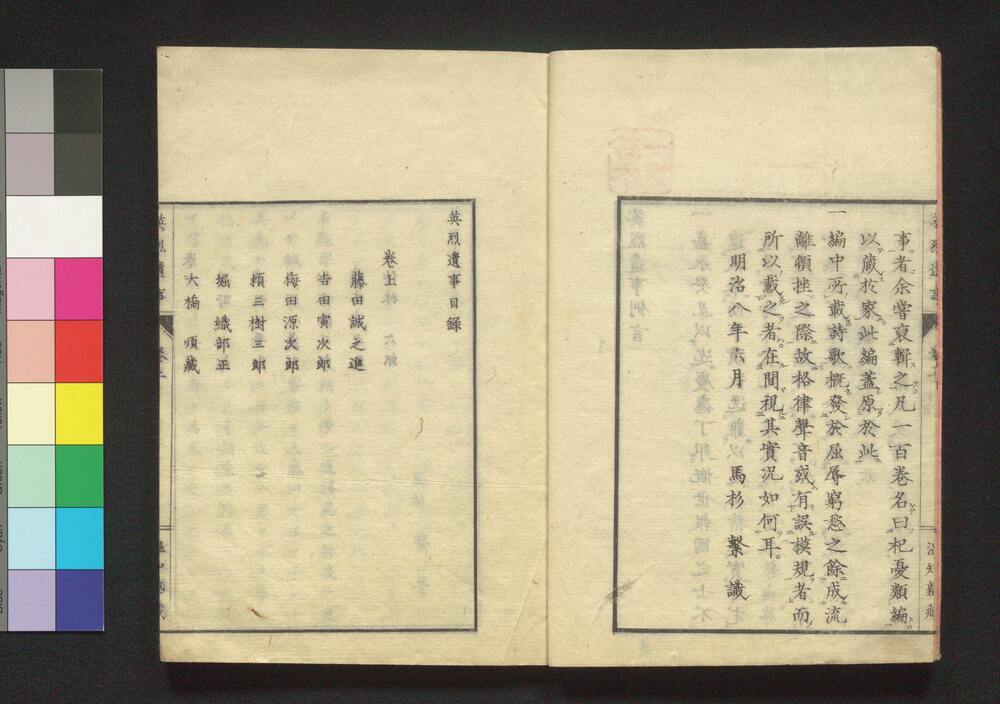 事者余嘗裒輯之凡一百卷名曰杞憂類編
以藏於家此編蓋原於此
一編中所載詩歌概發於屈辱窮愁之餘成流
離頓挫之際故格律聲音或有誤模規者而
所以載之者在間視其實况如何耳。
明治八年六月 馬杉 繫 識
英烈遺事目錄
卷上
藤田誠之進
吉田寅次郎
梅田源次郎
賴三樹三郎
堀 織部正
大橋 順藏
英烈遺事